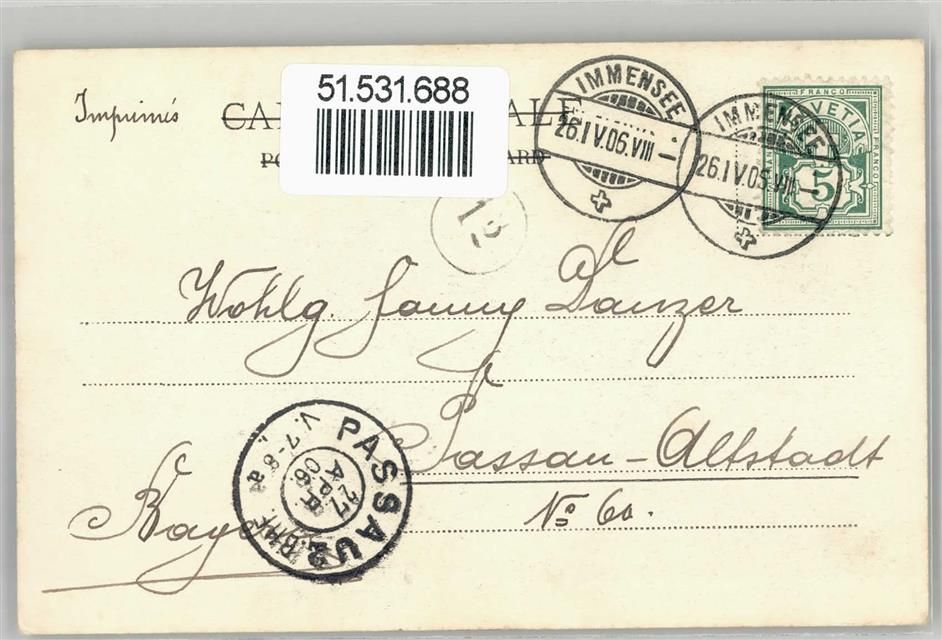 51.531.688
Imprimés
IMMENSEE
26.IV.06.VIII
IMMENSEE
26.IV.06.VIII
FRANCO
HELVETIA
FRANCO
5
12
Wohlg. Fanny Danzer
Passau-Altstadt
No 60.
PASSAU 2
V. 7-8
27
APR
06.
BHF.